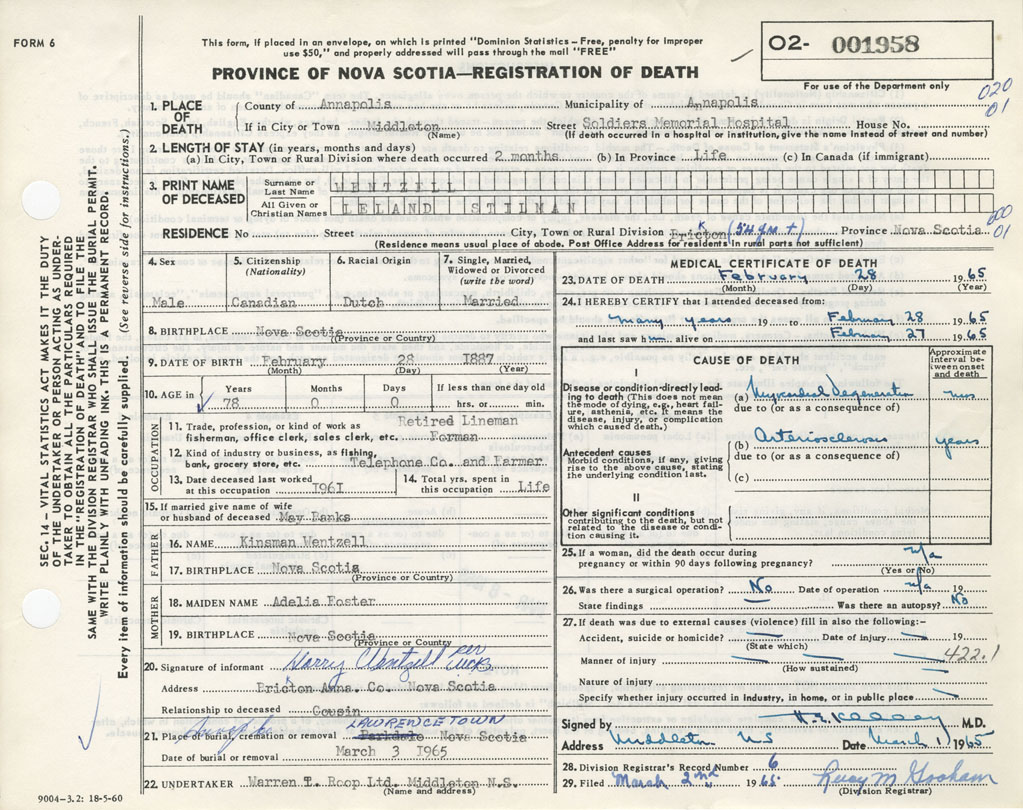 FORM 6
This form, if placed in an envelope, on which is printed "Dominion Statistics – Free, penalty for improper
use $50," and properly addressed will pass through the mail "FREE"
PROVINCE OF NOVA SCOTIA—REGISTRATION OF DEATH
O2- 001958
For use of the Department only
020
01
1. PLACE OF DEATH
County of Annapolis Municipality of Annapolis
If in City or Town Middleton Street Soldiers Memorial Hospital House No.
(Name) (If death occurred in a hospital or institution, give the name instead of street and number)
2. LENGTH OF STAY (in years, months and days)
(a) In City, Town or Rural Division where death occurred 2 months (b) In Province Life (c) In Canada (if immigrant)
3. PRINT NAME OF DECEASED
Surname or Last Name WENTZELL
All Given or Christian Names LELAND STILMAN
000
01
RESIDENCE No Street City, Town or Rural Division Bricton Province Nova Scotia
(Residence means usual place of abode. Post Office Address for residents in rural parts not sufficient)
4. Sex Male
5. Citizenship (Nationality) Canadian
6. Racial Origin Dutch
7. Single, Married, Widowed or Divorced (write the word) Married
8. BIRTHPLACE Nova Scotia
(Province or Country)
9. DATE OF BIRTH February 28 1887
(Month) (Day) (Year)
10. AGE in Years 78 Months 0 Days 0 If less than one day old hrs. or min.
OCCUPATION
11. Trade, profession, or kind of work as fisherman, office clerk, sales clerk, etc. Retired Lineman Forman
12. Kind of industry or business, as fishing, bank, grocery store, etc. Telephone Co. and Farmer
13. Date deceased last worked at this occupation 1961
14. Total yrs. spent in this occupation Life
15. If married give name of wife or husband of deceased May Banks
FATHER
16. NAME Kinsman Wentzell
17. BIRTHPLACE Nova Scotia
(Province or Country)
MOTHER
18. MAIDEN NAME Adelia Foster
19. BIRTHPLACE Nova Scotia
(Province or Country
20. Signature of informant Harry Wentzell per
Address Bricton Anna. Co. Nova Scotia
Relationship to deceased Cousin
LAWRENCETOWN
21. Place of burial, cremation or removal Parkdale Nova Scotia
Date of burial or removal March 3 1965
22. UNDERTAKER Warren T. Roop Ltd. Middleton N.S.
(Name and address)
9004–3.2: 18-5-60
MEDICAL CERTIFICATE OF DEATH
23. DATE OF DEATH February 28 1965
(Month) (Day) (Year)
24. I HEREBY CERTIFY that I attended deceased from:
many years 19 to February 28 1965
and last saw him alive on February 27 1965
CAUSE OF DEATH
Approximate interval between onset and death
I
Disease or condition directly leading to death (This does not mean the mode of dying, e.g., heart failure, asthenia, etc. It means the disease, injury, or complication which caused death.)
(a) Myocardial Degeneration yrs
due to (or as a consequence of)
Antecedent causes
Morbid conditions, if any, giving rise to the above cause, stating the underlying condition last.
(b) Arteriosclerosis years
due to (or as a consequence of)
(c)
II
Other significant conditions
contributing to the death, but not related to the disease or condition causing it.
25. If a woman, did the death occur during pregnancy or within 90 days following pregnancy? n/a
(Yes or No)
26. Was there a surgical operation? No Date of operation n/a 19
State findings Was there an autopsy? No
27. If death was due to external causes (violence) fill in also the following:–
Accident, suicide or homicide? Date of injury 19
(State which)
Manner of injury 422.1
(How sustained)
Nature of injury
Specify whether injury occurred in industry, in home, or in public place
Signed by M.D.
Address Middleton NS Date March 1 1965
28. Division Registrar's Record Number 6
29. Filed March 2nd 1965 Lucy M Gosham
(Division Registrar)
SEC. 14 – VITAL STATISTICS ACT MAKES IT THE DUTY
OF THE UNDERTAKER OR PERSON ACTING AS UNDERTAKER
TO OBTAIN ALL THE PARTICULARS REQUIRED
IN THE "REGISTRATION OF DEATH" AND TO FILE THE
SAME WITH THE DIVISION REGISTRAR WHO SHALL ISSUE THE BURIAL PERMIT.
WRITE PLAINLY WITH UNFADING INK. THIS IS A PERMANENT RECORD.
Every item of information should be carefully supplied. (See reverse side for instructions.)